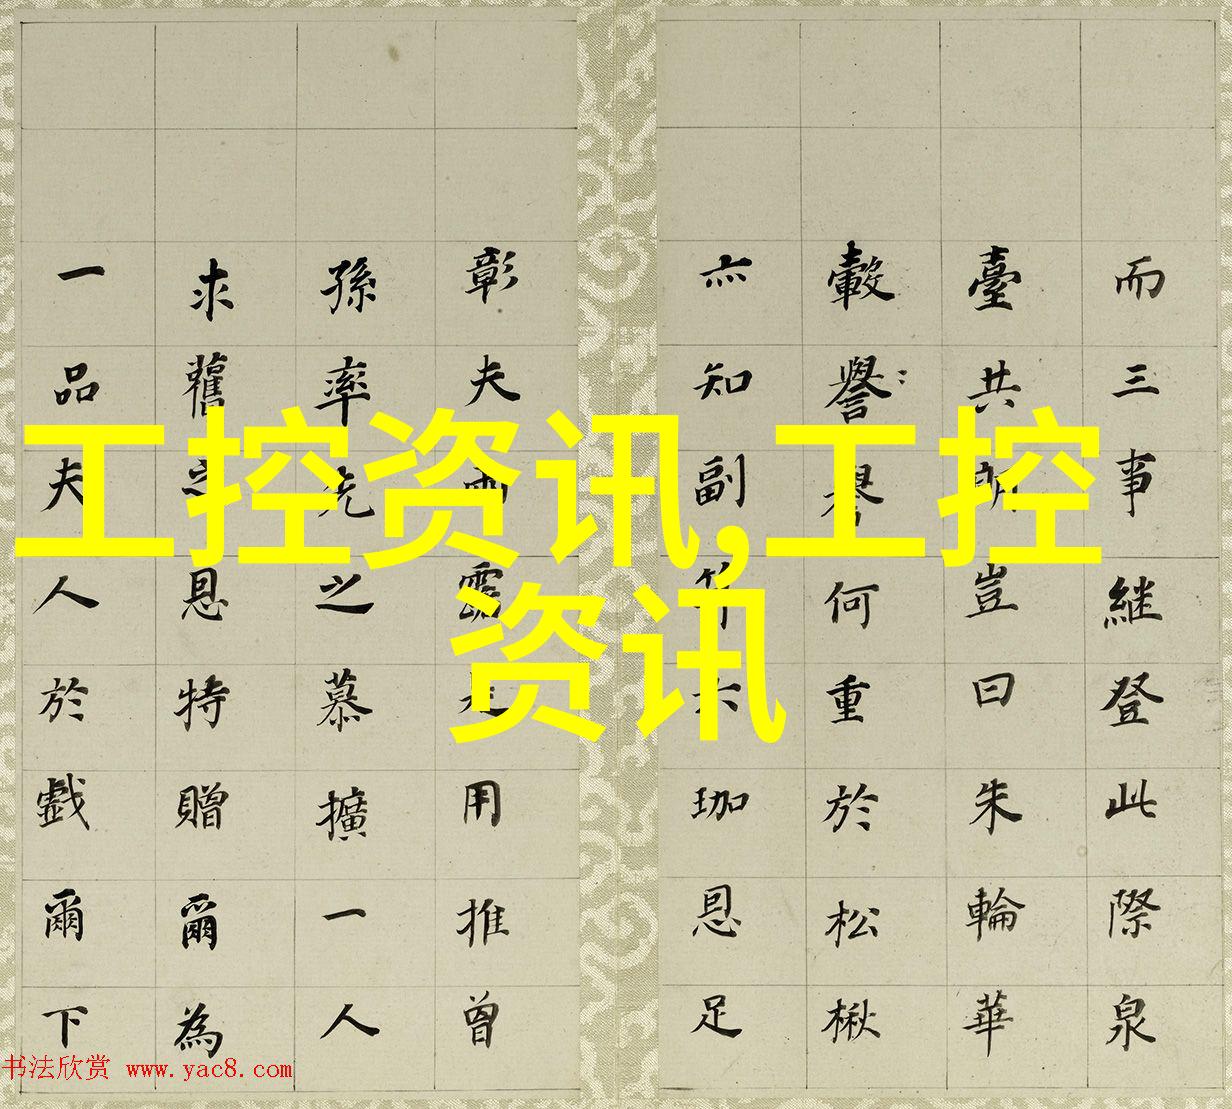 而三事継登此際泉
臺共豈曰朱輪華
轂譽何重於松楸
亦知副笄六珈恩足
彰夫雨露是用推曾
孫率先之慕擴一人
求舊之恩特贈爾為
一品夫人於戲爾下
工控资讯,工控
资讯
书法欣赏 www.yac8.com